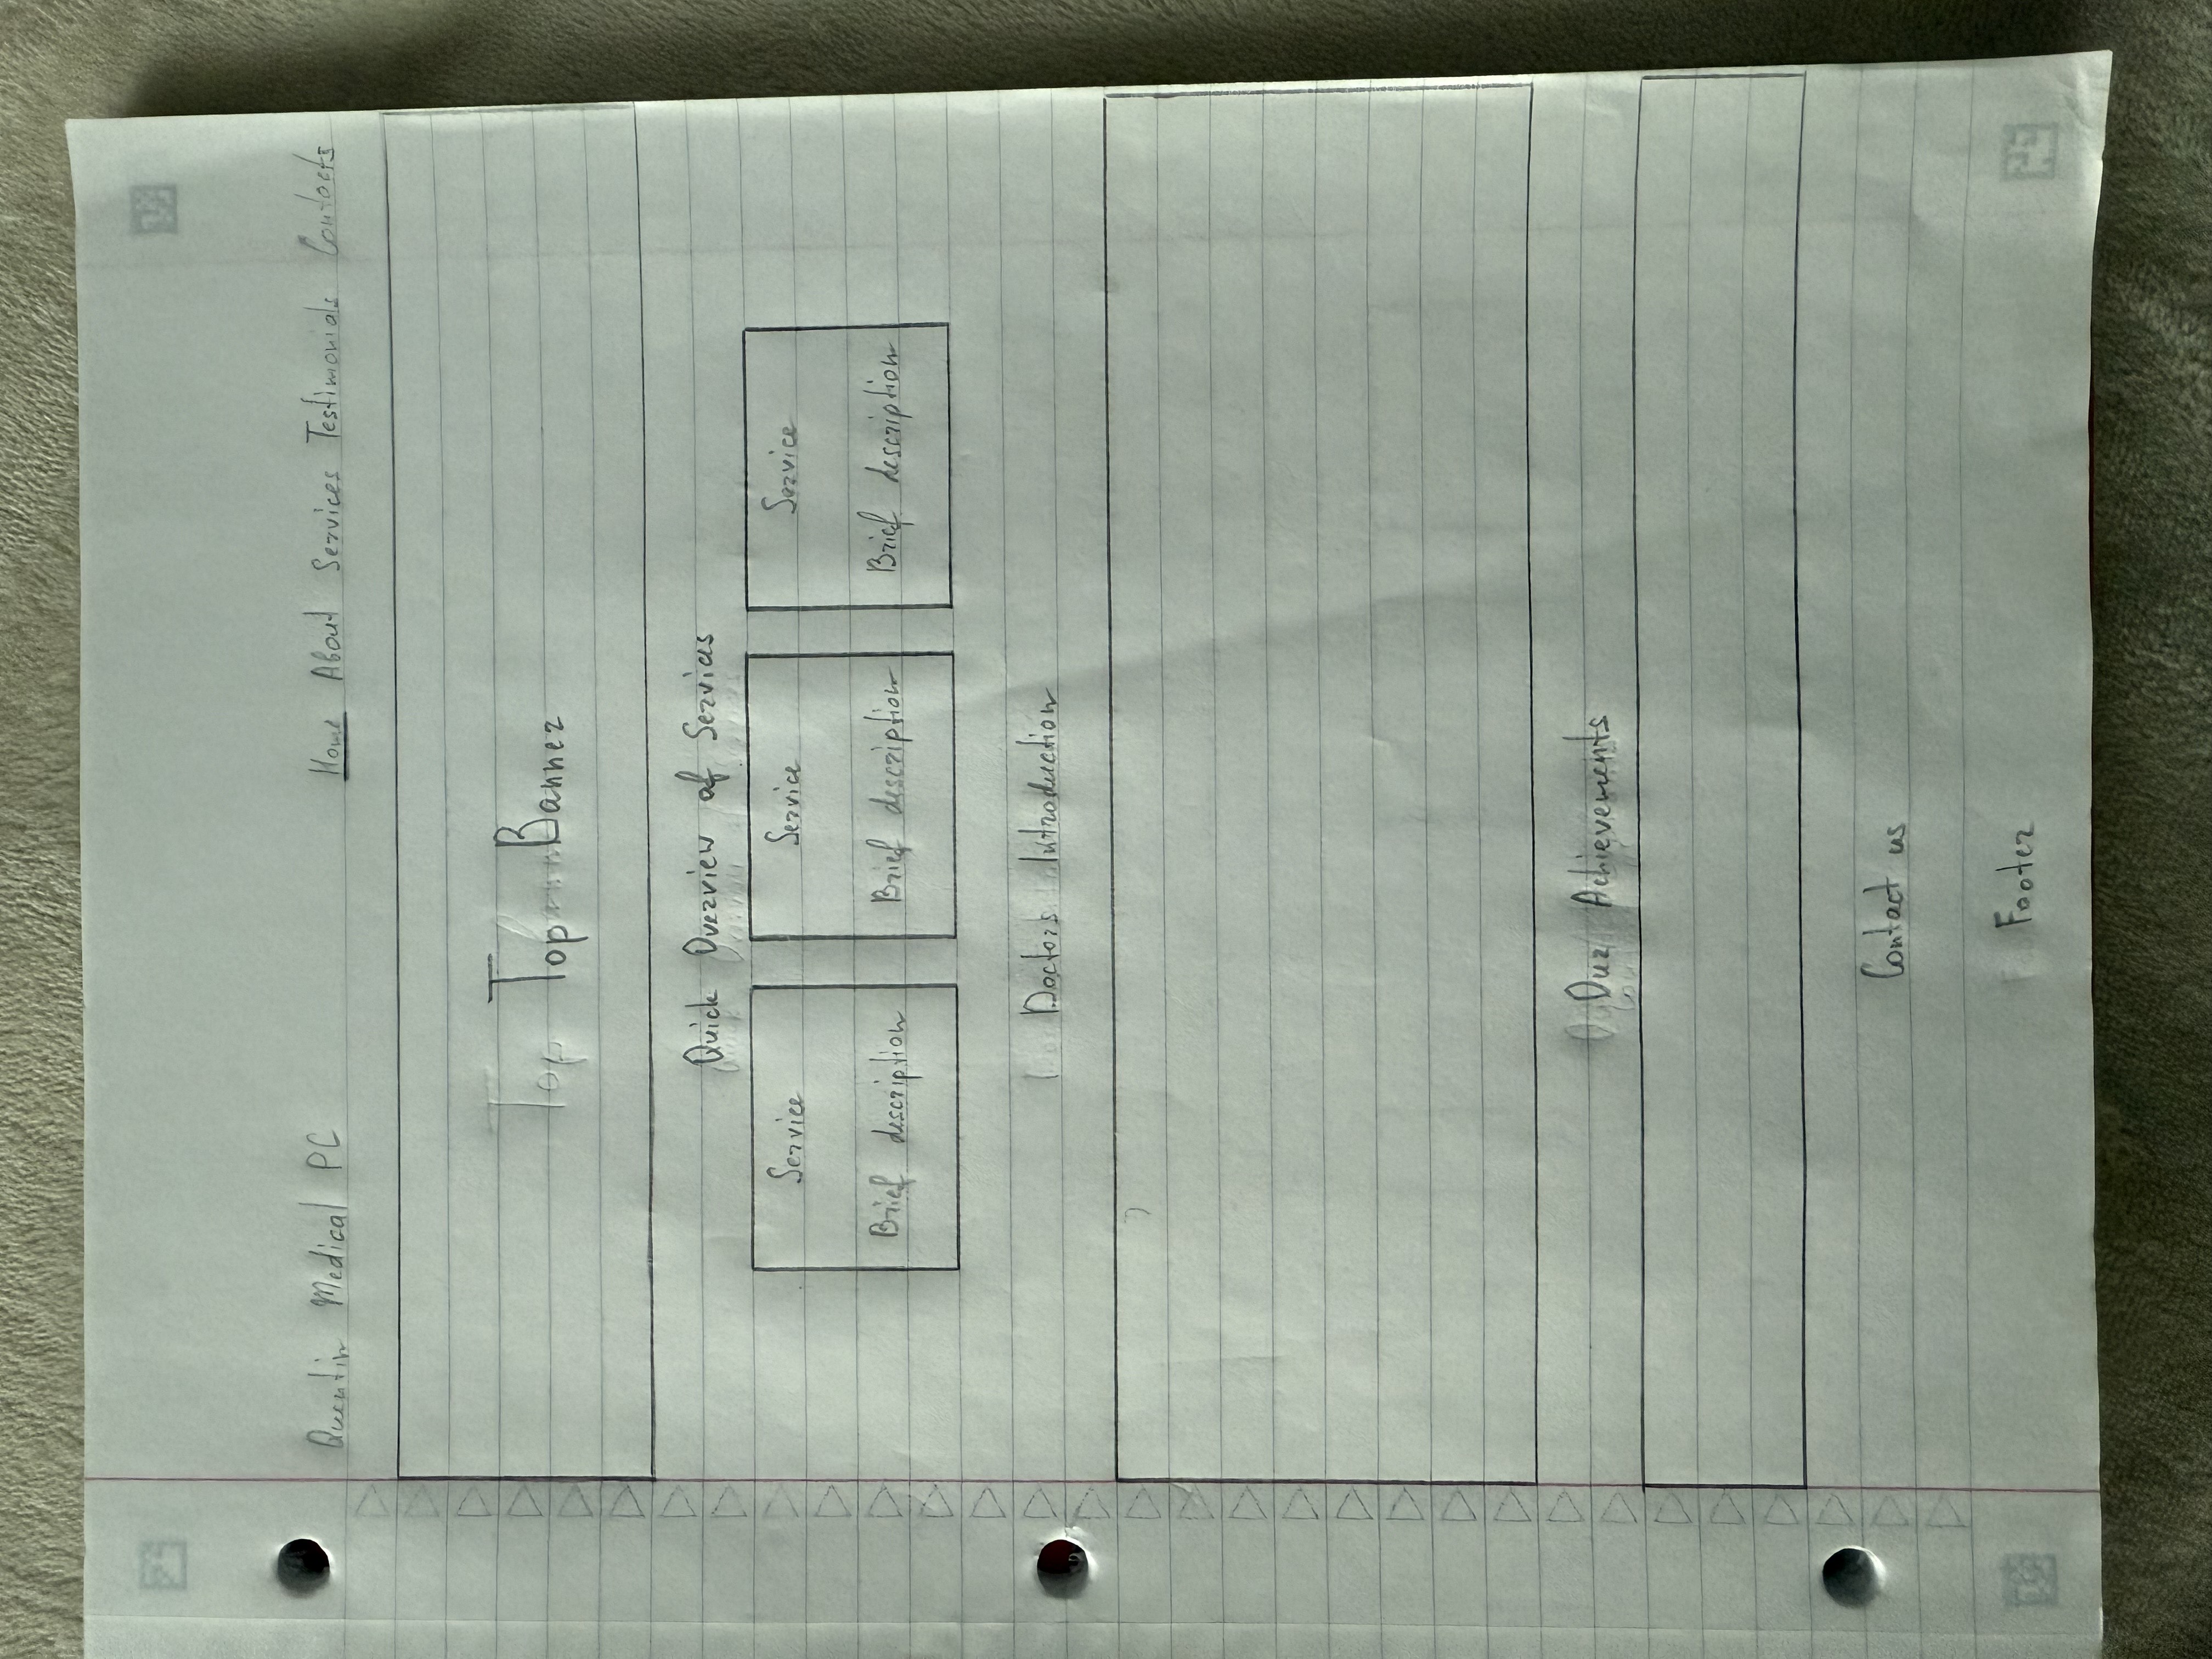 Quentin Medical PC Home About Services Testimonials Contacts
Top Banner
Quick Overview of Services
Service Service Service
Brief description Brief description Brief description
Doctors Introduction
Our Achievements
Contact us
Footer